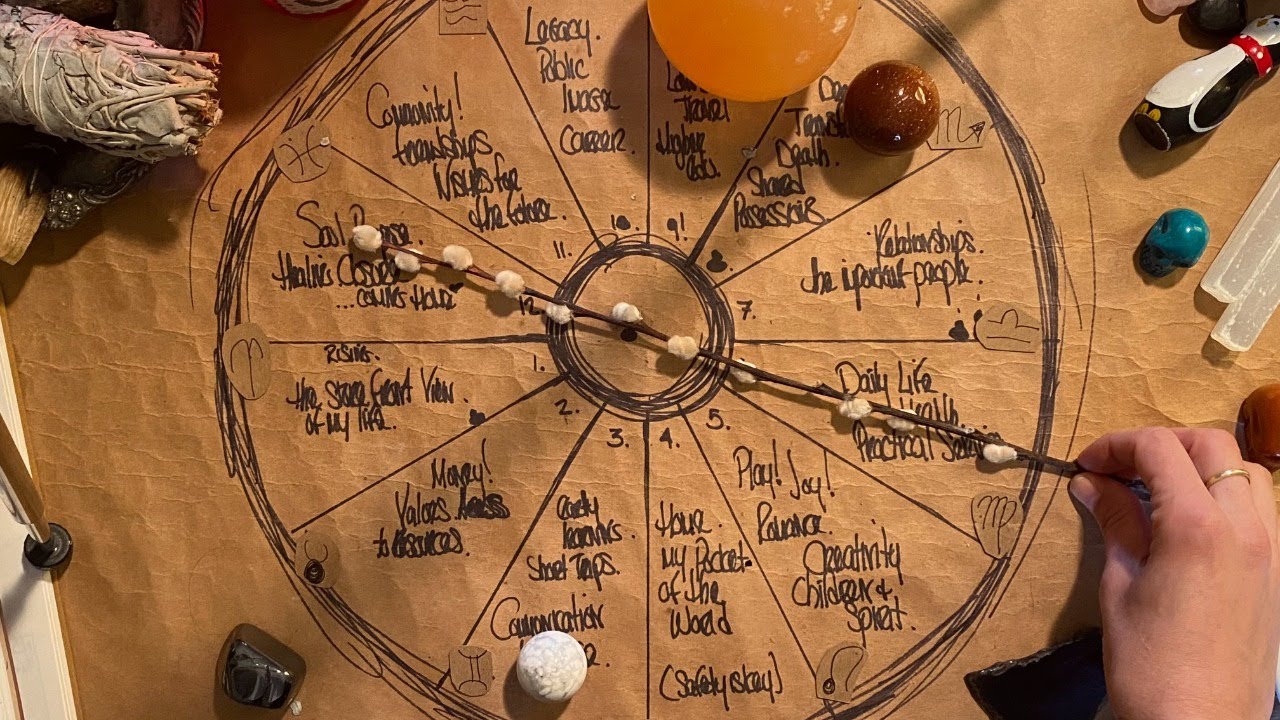 Legacy.
Public
Image
Career.
10.
Travel
Higher
9!
Death.
Shared
Possessions.
Relationships.
the important people.
7.
Daily Life
Health
Practical
Play! Joy!
Romance.
Creativity
Children &
Spirit.
5.
Home.
My Pocket
of the
World
(Safety
4.
early
learning.
Short Trips.
3.
Money!
Values
to resources.
2.
Rising.
the Store Front View
of my life.
1.
Soul
Healing Closure
...coming Home
12.
Community!
friendships
Wishes for
the future.
11.